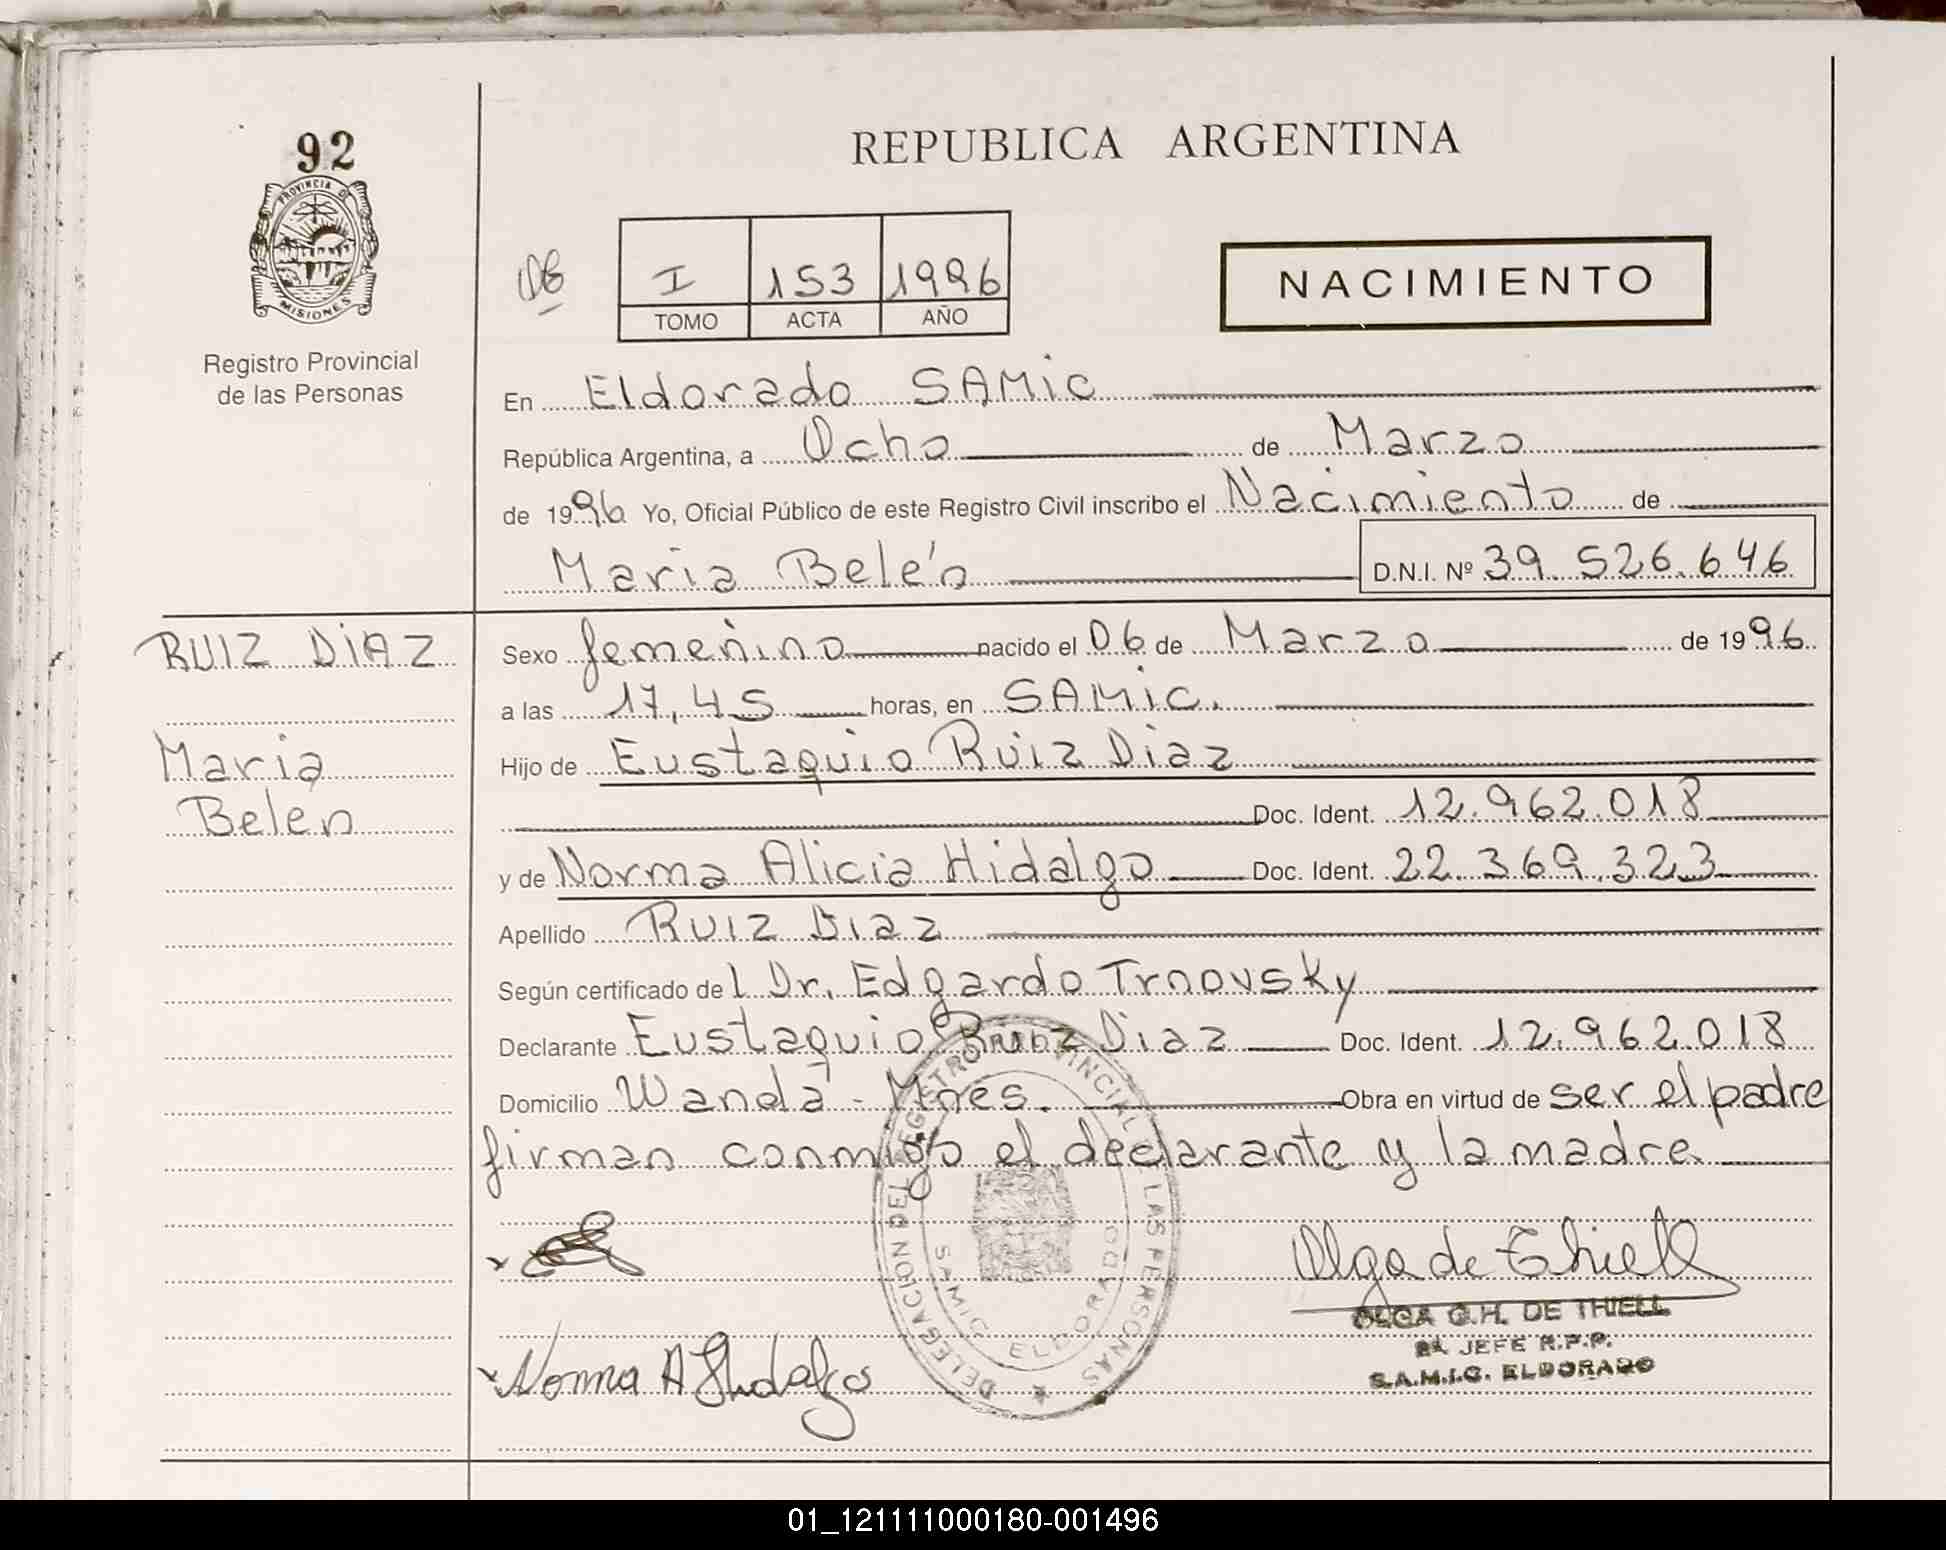 92
PROVINCIA D
MISIONES
Registro Provincial
de las Personas
REPUBLICA ARGENTINA
I 153 1996
TOMO ACTA AÑO
NACIMIENTO
En Eldorado SAMiC
República Argentina, a Ocho de Marzo
de 1996 Yo, Oficial Público de este Registro Civil inscribo el Nacimiento de
Maria Belén D.N.I. Nº 39.526.646
RUIZ DIAZ
Maria
Belen
Sexo femenino nacido el 06 de Marzo de 1996
a las 17,45 horas, en SAMIC.
Hijo de Eustaquio Ruiz Diaz
Doc. Ident. 12.962.018
y de Norma Alicia Hidalgo Doc. Ident. 22.369.323
Apellido RUIZ Diaz
Según certificado del Dr. Edgardo Trnovsky
Declarante Eustaquio Ruiz Diaz Doc. Ident. 12.962.018
Domicilio Wanda - Mnes. Obra en virtud de ser el padre
firman conmigo el declarante y la madre
DELEGACION DEL REGISTRO PROVINCIAL DE LAS PERSONAS
SAMIC ELDORADO
Olga de Thiell
OLGA G.H. DE THIELL
2A JEFE R.P.P.
S.A.M.I.C. ELDORADO
Norma A Hidalgo
01_121111000180-001496